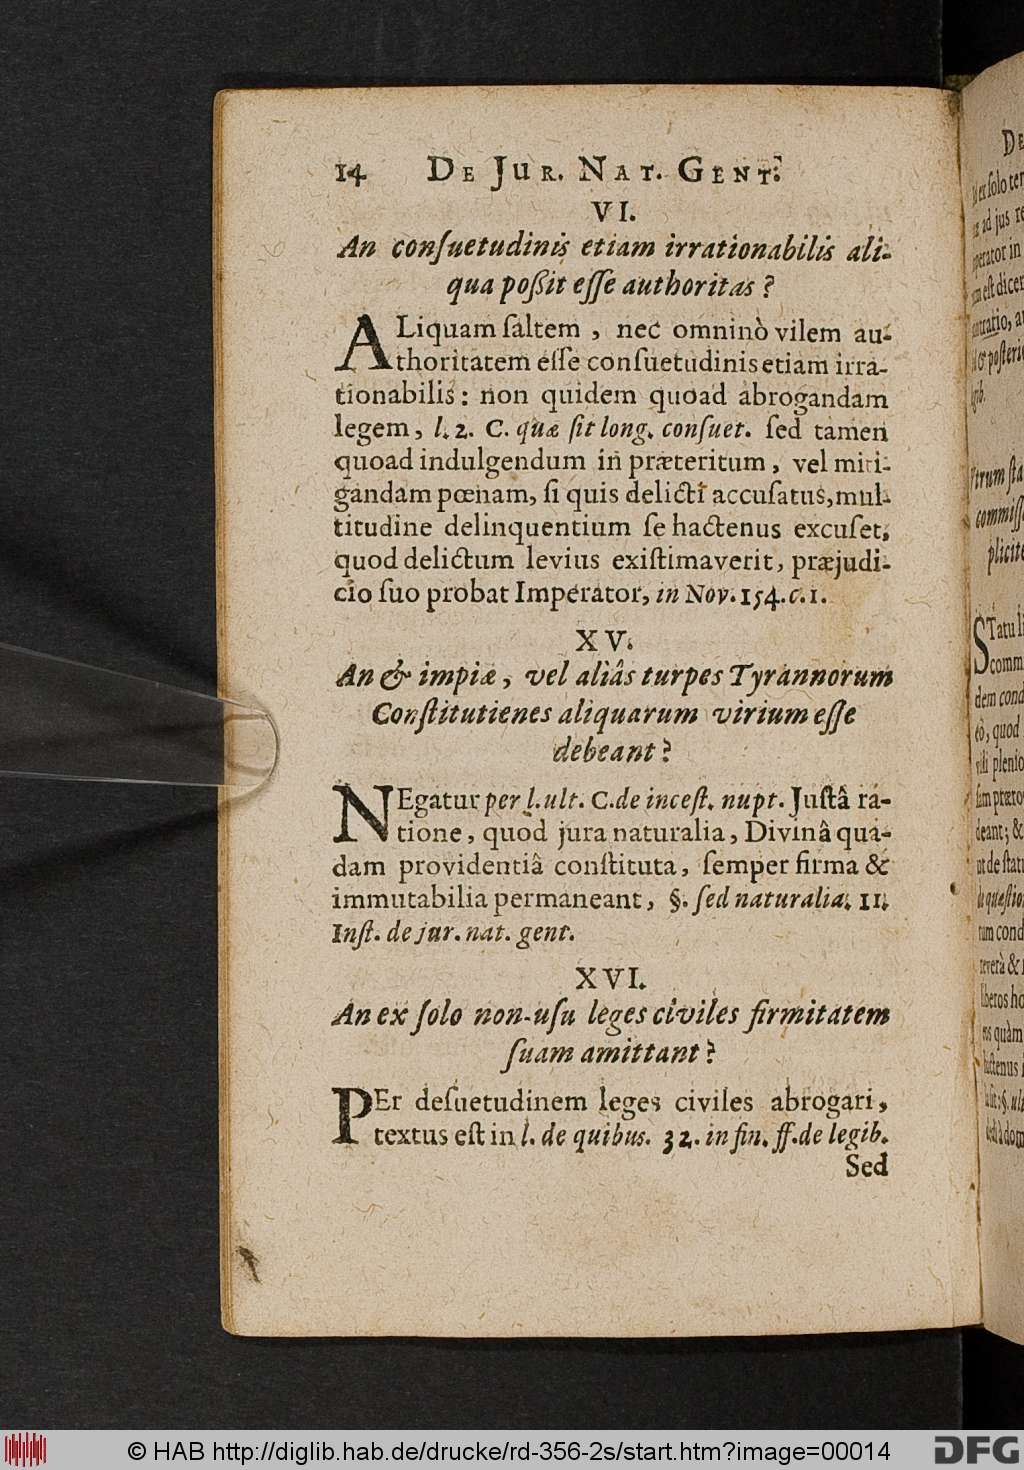 14 De Jur. Nat. Gent.
VI.
An conſuetudinis etiam irrationabilis ali-
qua poßit eſſe authoritas?
ALiquam ſaltem, nec omninò vilem au-
thoritatem eſſe conſuetudinis etiam irra-
tionabilis: non quidem quoad abrogandam
legem, l. 2. C. quæ ſit long. conſuet. ſed tamen
quoad indulgendum in præteritum, vel miti-
gandam pœnam, ſi quis delicti accuſatus, mul-
titudine delinquentium ſe hactenus excuſet,
quod delictum levius exiſtimaverit, præjudi-
cio ſuo probat Imperator, in Nov. 154. c. 1.
XV.
An & impiæ, vel aliâs turpes Tyrannorum
Conſtitutienes aliquarum virium eſſe
debeant?
NEgatur per l. ult. C. de inceſt. nupt. Juſtâ ra-
tione, quod jura naturalia, Divinâ qua-
dam providentiâ conſtituta, ſemper firma &
immutabilia permaneant, §. ſed naturalia. 11.
Inſt. de jur. nat. gent.
XVI.
An ex ſolo non-uſu leges civiles firmitatem
ſuam amittant?
PEr deſuetudinem leges civiles abrogari,
textus eſt in l. de quibus. 32. in fin. ff. de legib.
Sed
© HAB http://diglib.hab.de/drucke/rd-356-2s/start.htm?image=00014
DFG